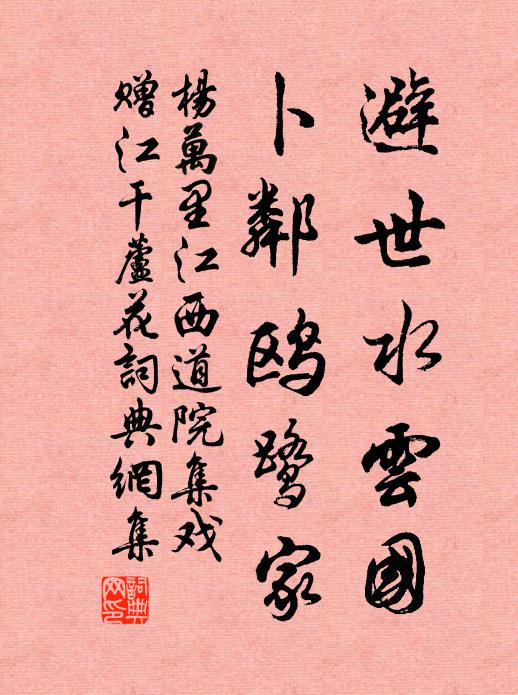 避世水雲國
卜鄰鷗鷺家
楊萬里江西道院集戏
贈江干蘆花詞典網集
詞典
网印